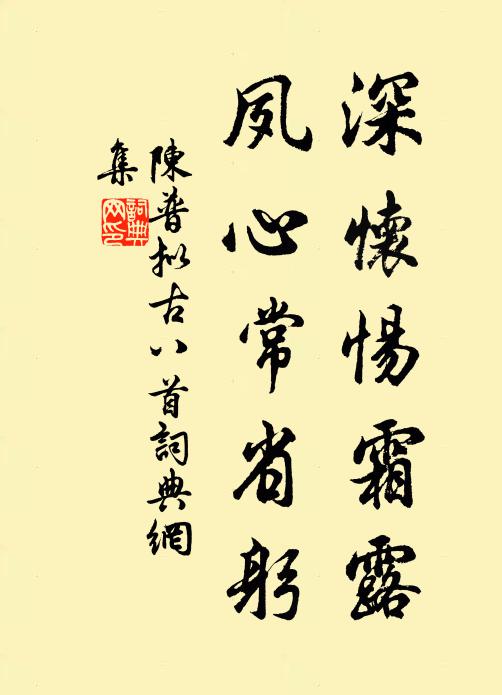 深懷惕霜露
夙心常省躬
陳普拟古八首詞典網
集
詞典網印